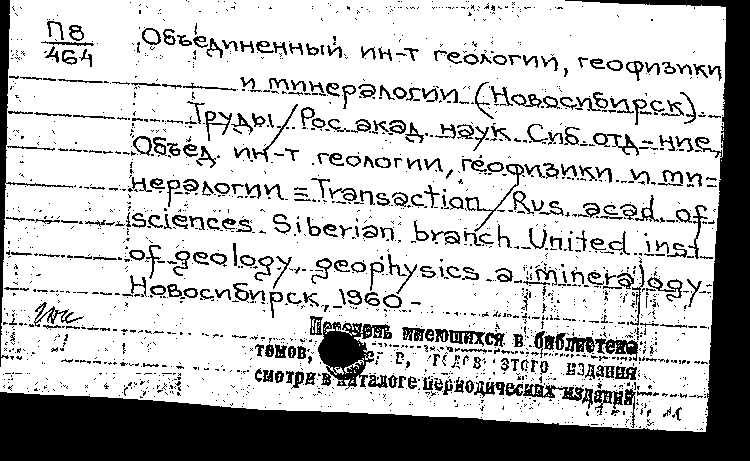 П8
464
Объединенный ин-т геологии, геофизики
и минералогии (Новосибирск).
Труды / Рос. акад. наук. Сиб. отд-ние,
Объед. ин-т геологии, геофизики и ми-
нералогии = Transaction / Rus. acad. of
sciences. Siberian branch. United inst
of geology, geophysics a. mineralogy.-
Новосибирск, 1960 -
Перечень имеющихся в библиотеке
томов, в, годов этого издания
смотри в каталоге периодических изданий